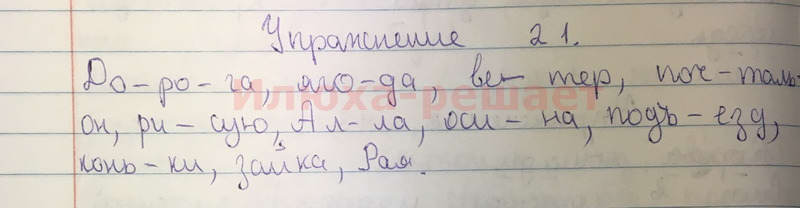 Упражнение 21.
До-ро-га, яго-да, ве-тер, поч-таль-
он, ри-сую, Ал-ла, оси-на, подъ-езд,
конь-ки, зайка, Рая.
Илюха-решает